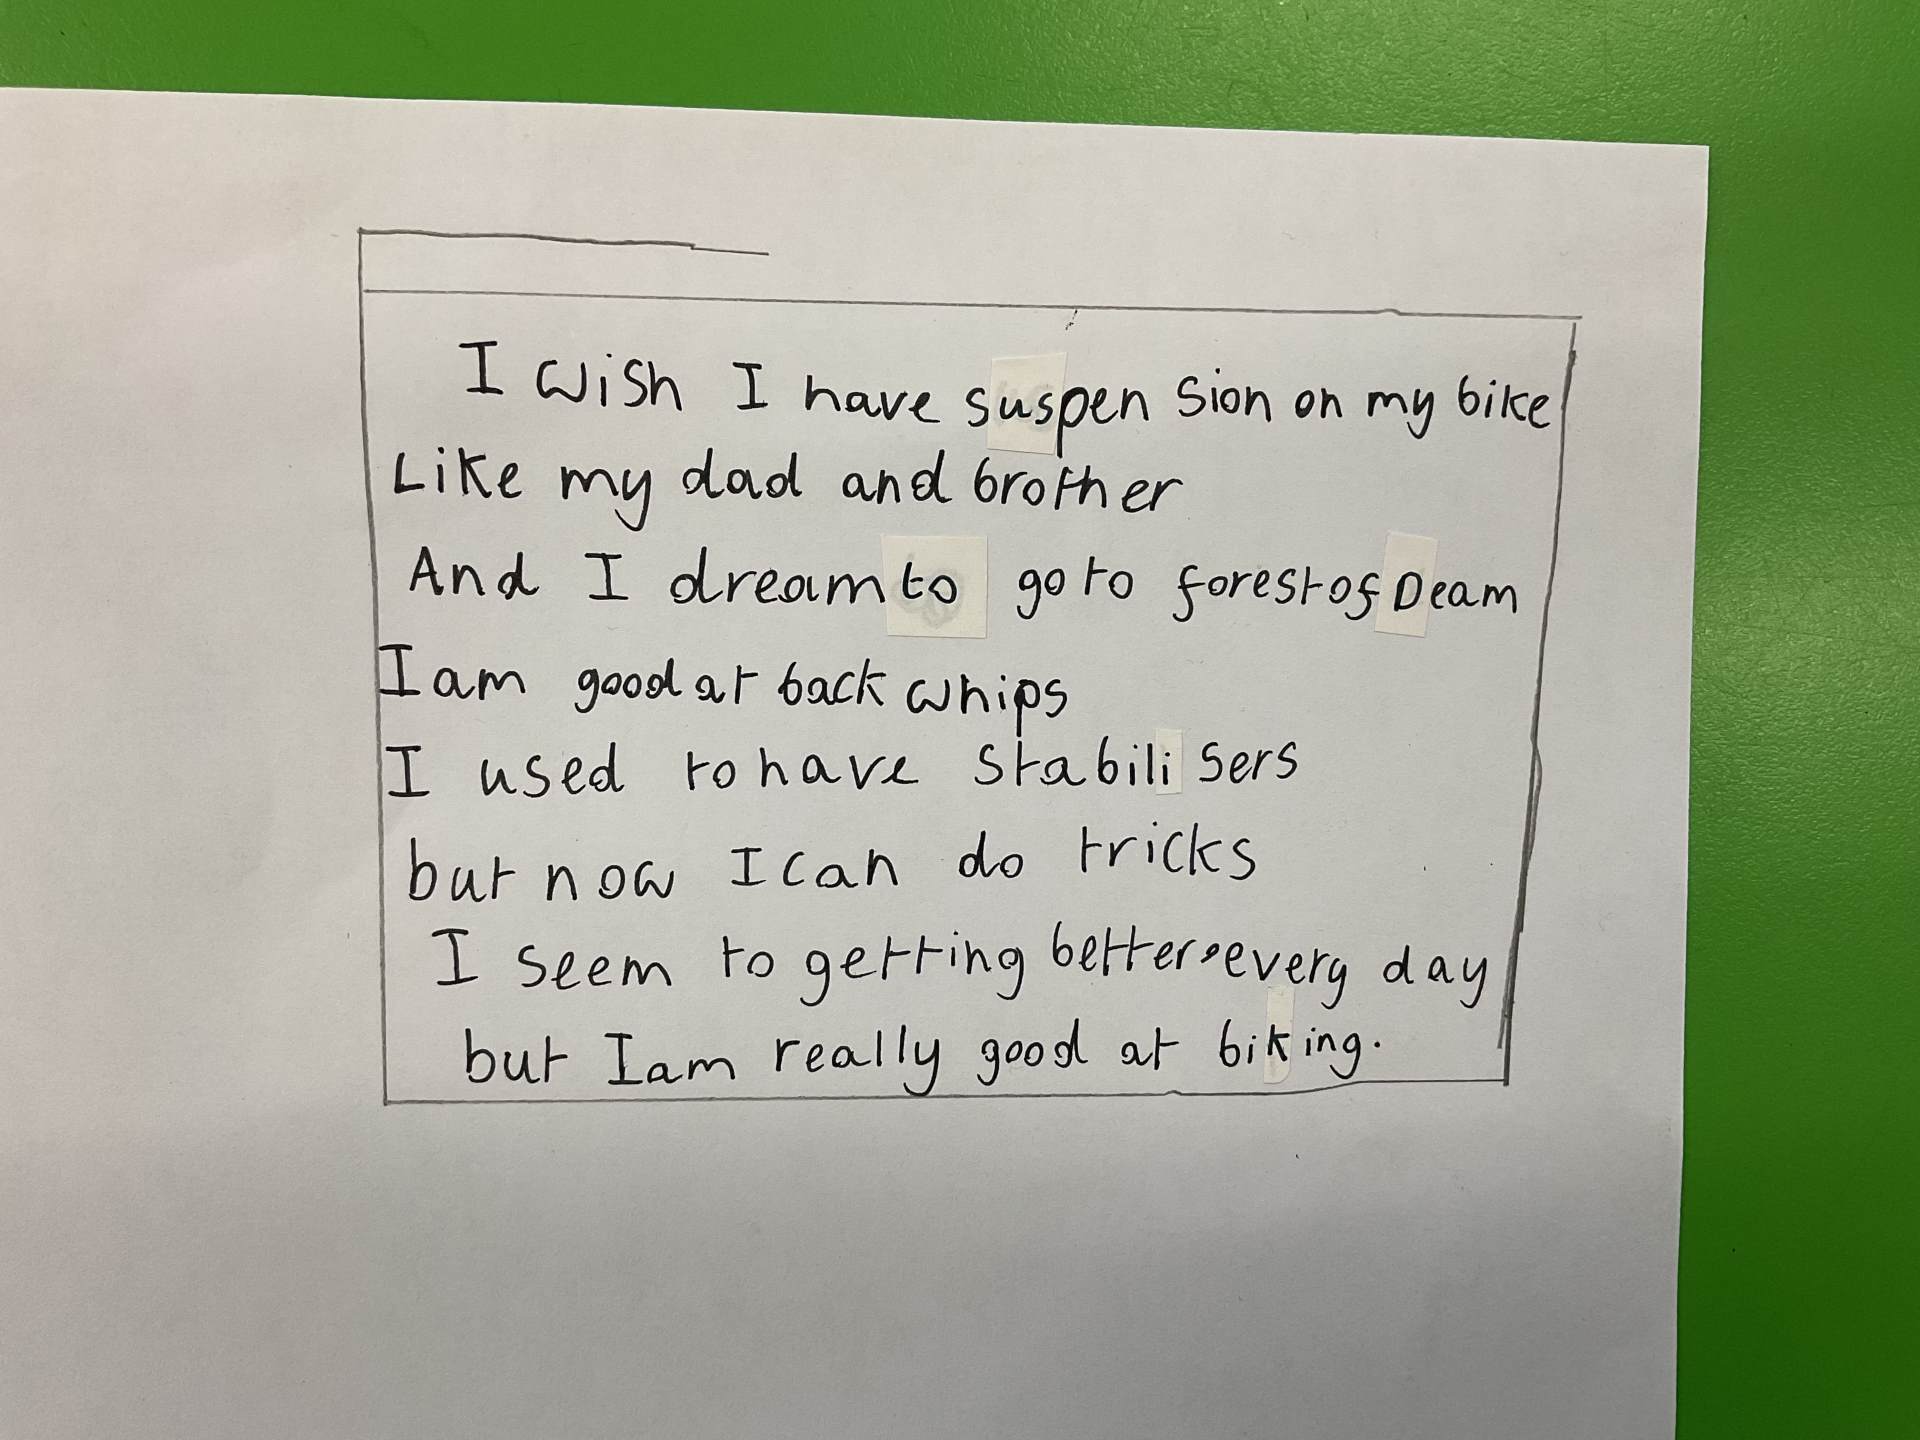 I wish I have suspen sion on my bike
Like my dad and brother
And I dream to go to forest of Deam
I am good at back whips
I used to have stabili sers
but now I can do tricks
I seem to getting better every day
but I am really good at biking.